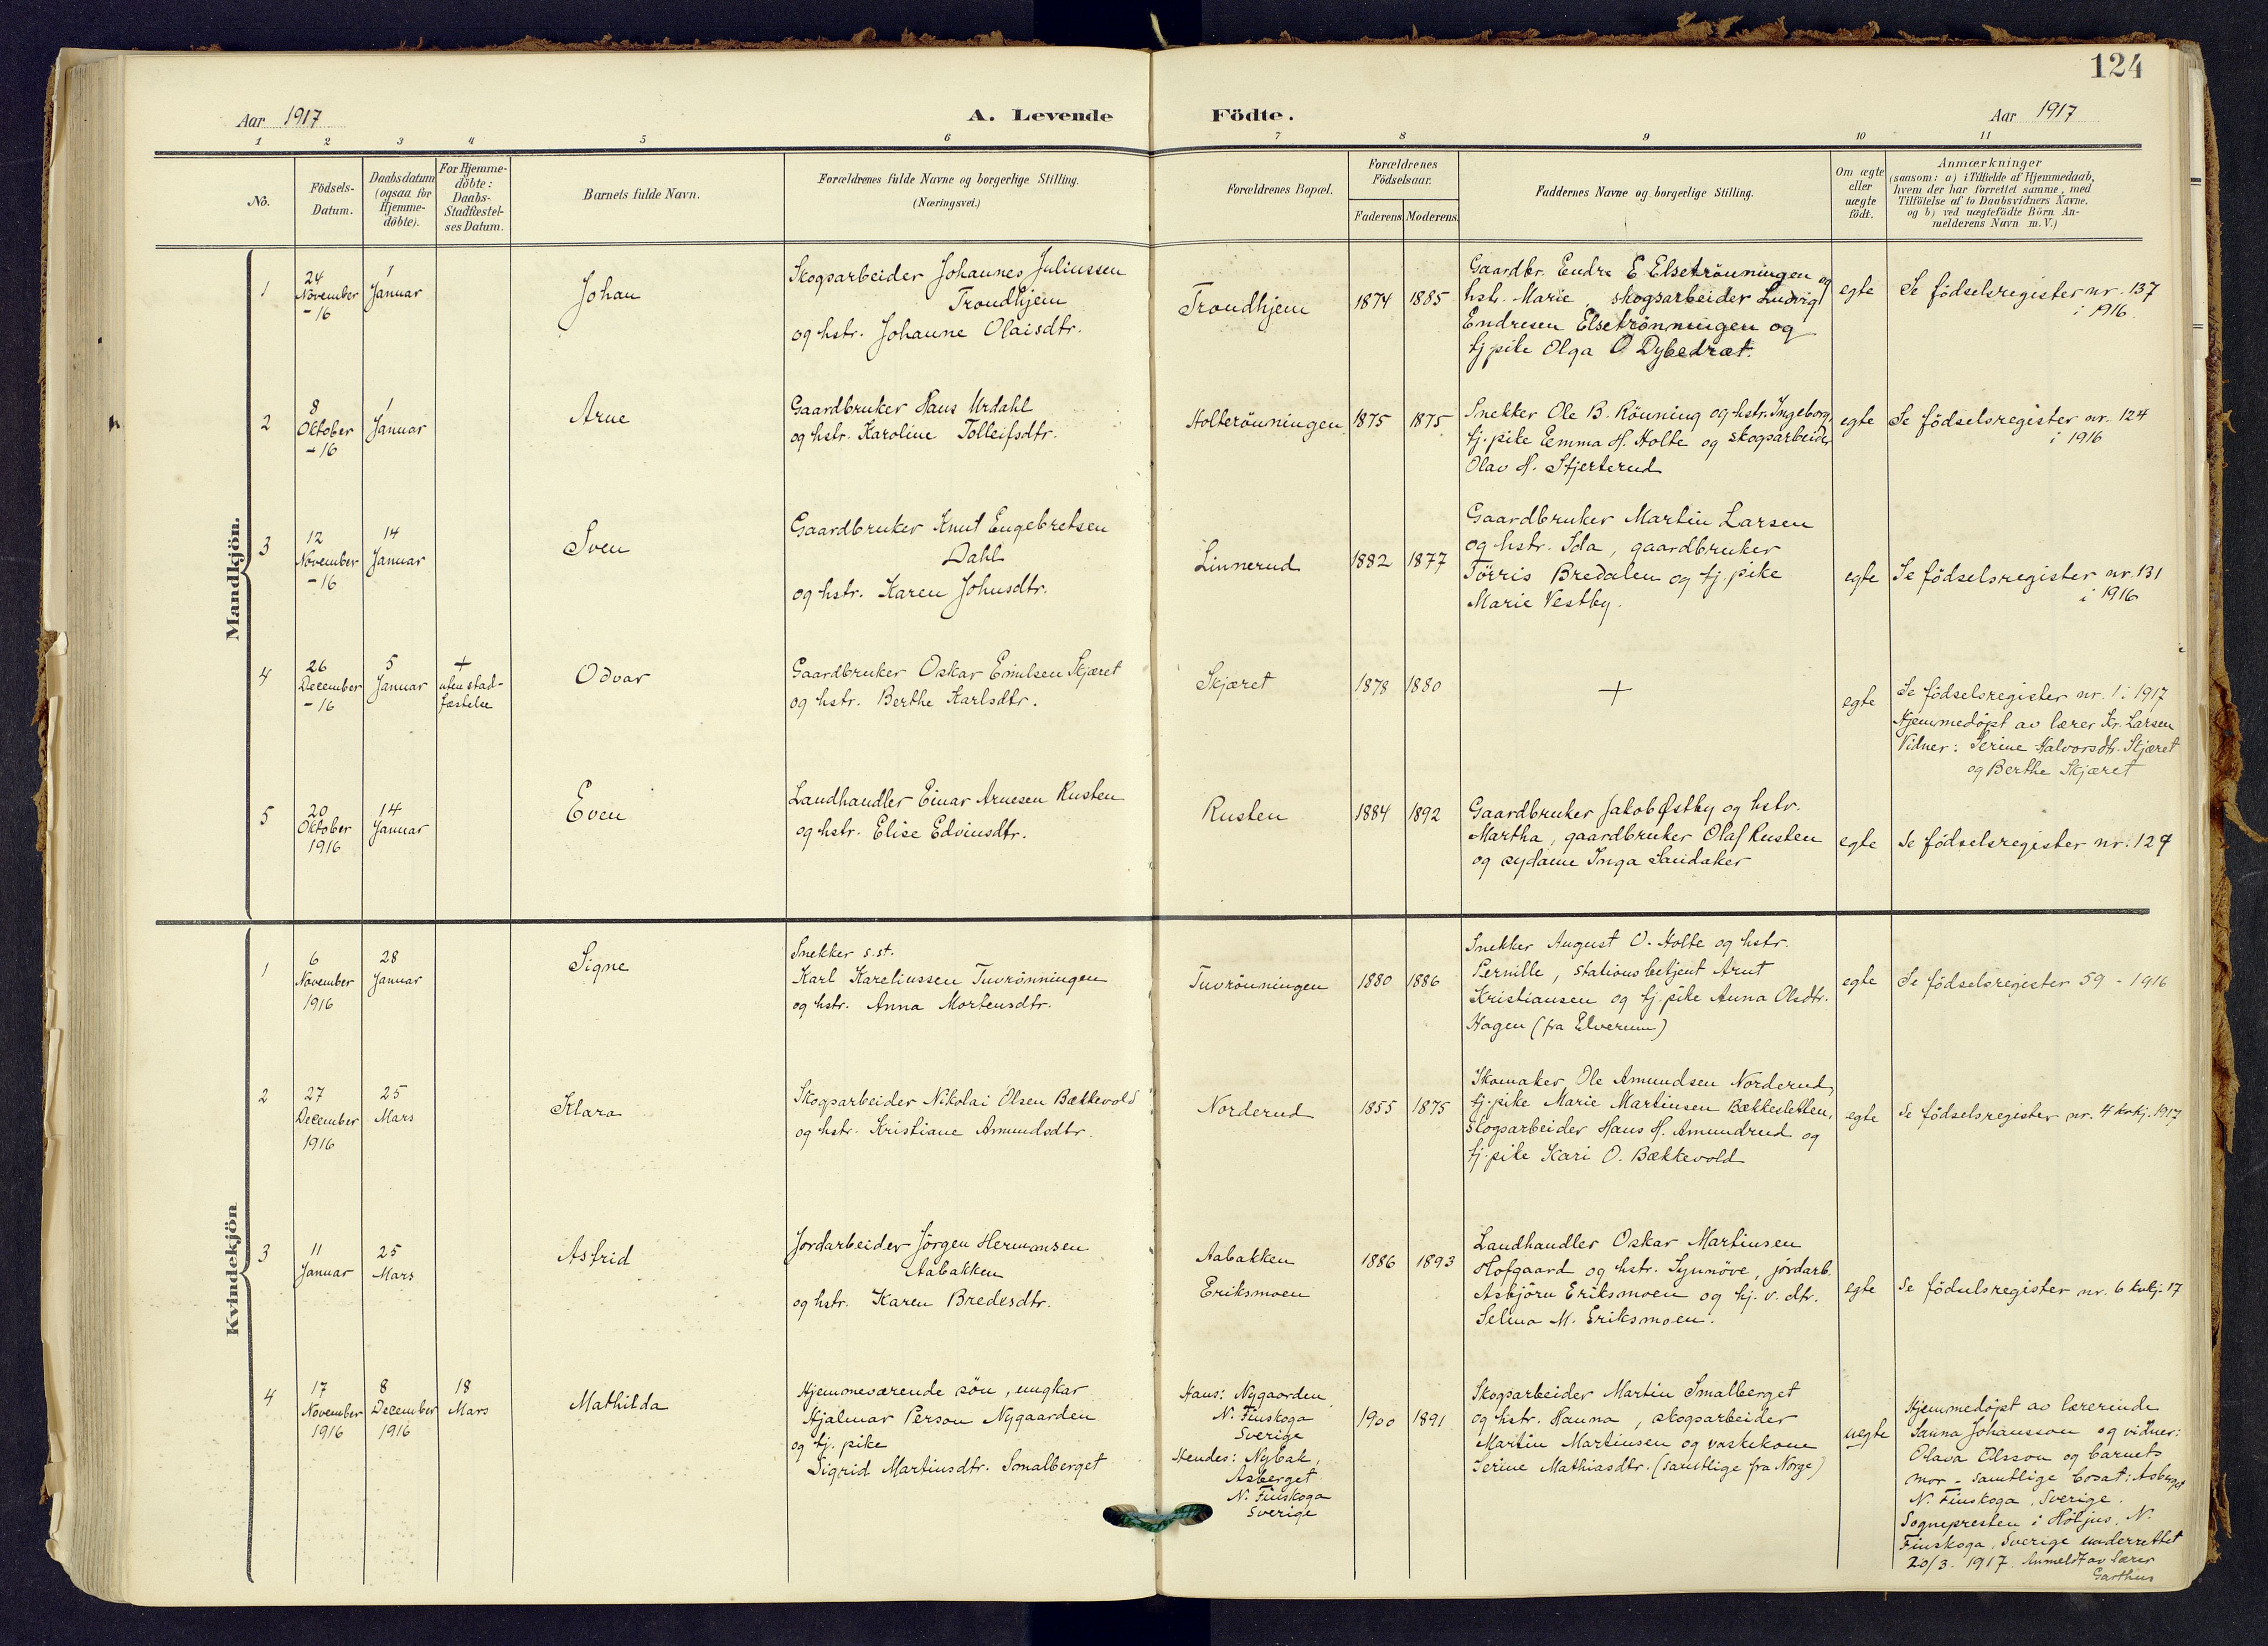 124
Aar 1917
A. Levende Födte.
Aar 1917
1 2 3 4 5 6 7 8 9 10 11
No.
Födsels-
Datum.
Daabsdatum
(ogsaa for
Hjemme-
döbte).
For Hjemme-
döbte:
Daabs-
Stadfæstel-
ses Datum.
Barnets fulde Navn.
Forældrenes fulde Navne og borgerlige Stilling.
(Næringsvei.)
Forældrenes Bopæl.
Forældrenes
Födselsaar.
Faderens. Moderens.
Faddernes Navne og borgerlige Stilling.
Om ægte
eller
uægte
födt.
Anmærkninger
(saasom: a) i Tilfælde af Hjemmedaab,
hvem der har forrettet samme, med
Tilföielse af to Daabsvidners Navne,
og b) ved uægtefödte Börn An-
melderens Navn m.V.)
Mandkjön.
1
24
November
-16
1
Januar
Johan
Skogsarbeider Johannes Juliussen
Trondhjem
og hstr. Johanne Olaisdtr.
Trondhjem
1874 1885
Gaardbr. Endre E Elsetrönningen og
hstr. Marie, skogsarbeider Ludvig
Endresen Elsetrönningen og
tj pike Olga O Dybedræt.
egte
Se födselsregister nr. 137
i 1916.
2
8
Oktober
-16
1
Januar
Arne
Gaardbruker Hans Urdahl
og hstr. Karoline Tolleifsdtr.
Holterönningen
1875 1875
Snekker Ole B. Rönning og hstr. Ingeborg,
tj. pike Emma H. Holte og skogsarbeider
Olav H. Stjerterud
egte
Se födselsregister nr. 124
i 1916
3
12
November
-16
14
Januar
Sven
Gaardbruker Knut Engebretsen
Dahl
og hstr. Karen Johnsdtr.
Linnerud
1882 1877
Gaardbruker Martin Larsen
og hstr. Ida, gaardbruker
Törris Bredalen og tj. pike
Marie Vestby.
egte
Se födselsregister nr. 131
i 1916
4
26
December
-16
5
Januar
+
uten stad-
fæstelse
Odvar
Gaardbruker Oskar Emilsen Skjæret
og hstr. Berthe Karlsdtr.
Skjæret
1878 1880
+
egte
Se födselsregister nr. 1 i 1917
Hjemmedöpt av lærer Kr. Larsen
Vidner: Serine Halvorsdtr. Skjæret
og Berthe Skjæret
5
20
Oktober
1916
14
Januar
Even
Landhandler Einar Arnesen Rusten
og hstr. Elise Edvinsdtr.
Rusten
1884 1892
Gaardbruker Jakob Østby og hstr.
Martha, gaardbruker Olaf Rusten
og sydame Inga Sandaker
egte
Se födselsregister nr. 127
Kvindekjön
1
6
November
1916
28
Januar
Signe
Snekker s.st.
Karl Kareliussen Tuvrönningen
og hstr. Anna Mortensdtr.
Tuvrönningen
1880 1886
Snekker August O. Holte og hstr.
Pernille, stationsbetjent Arnt
Kristiansen og tj. pike Anna Olsdtr.
Hagen (fra Elverum)
egte
Se födselsregister 59 - 1916
2
27
December
1916
25
Mars
Klara
Skogsarbeider Nikolai Olsen Bækkevold
og hstr. Kristiane Amundsdtr.
Norderud
1855 1875
Skomaker Ole Amundsen Norderud,
tj. pike Marie Martinsen Bækkesletten,
skogsarbeider Hans H. Amundrud og
tj. pike Kari O. Bækkevold
egte
Se födselsregister nr. 4 kvkj. 1917
3
11
Januar
25
Mars
Astrid
Jordarbeider Jörgen Hermansen
Aabakken
og hstr. Karen Bredesdtr.
Aabakken
Eriksmoen
1886 1893
Landhandler Oskar Martinsen
Hofgaard og hstr. Synnöve, jordarb.
Asbjörn Eriksmoen og hj. v. dtr.
Selma M. Eriksmoen.
egte
Se födselsregister nr. 6 kvkj. 17
4
17
November
1916
8
December
1916
18
Mars
Mathilda
Hjemmeværende sön, ungkar
Hjalmar Person Nygaarden
og tj. pike
Sigrid Martinsdtr. Smalberget
Hans: Nygaarden,
N. Finskoga
Sverige
Hendes: Nybak,
Asberget
N. Finskoga
Sverige
1900 1891
Skogsarbeider Martin Smalberget
og hstr. Hanna, skogsarbeider
Martin Martinsen og vaskekone
Serine Mathiasdtr. (samtlige fra Norge)
uegte
Hjemmedöpt av lærerinde
Sanna Johansson og vidner:
Olava Olsson og barnets
mor - samtlige bosat: Asberget
N. Finskoga, Sverige.
Sognepresten i Höljes, N.
Finskoga, Sverige underrettet
20/3. 1917. Anmeldt av lærer
Garthus